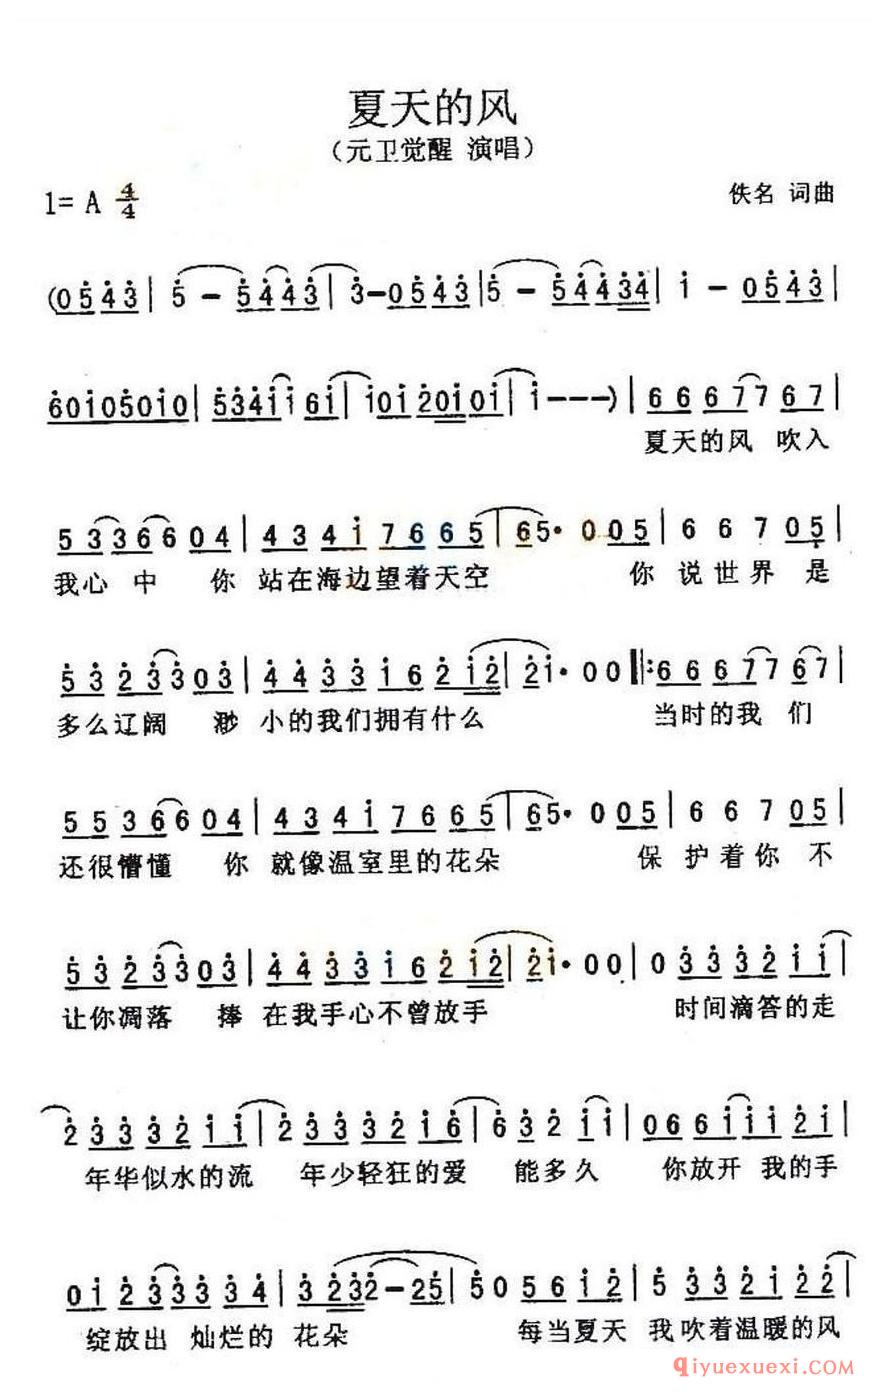 夏天的风
（元卫觉醒 演唱）
1= A 4/4
佚名 词曲
(0543 | 5 - 5443 | 3-0543 | 5 - 54434 | i - 0543 |
60i050i0 | 534ii6i | i0i20i0i | i---) | 6 6 6 77 67 |
夏天的风 吹入
5 3366 04 | 4 3 4 i 7 6 6 5 | 65· 005 | 6 6 7 05 |
我心 中 你 站在海边望着天空 你 说世界 是
5 3 2 33 03 | 4 4 3 3 i 6 2 i2 | 2i· 00 |: 6 6 6 77 67 |
多么辽阔 渺 小的我们拥有什么 当时的我 们
5 5 3 66 04 | 4 3 4 i 7 6 6 5 | 65· 0 05 | 6 6 7 05 |
还很懵懂 你 就像温室里的花朵 保 护着你 不
5 3 2 33 03 | 4 4 3 3 i 6 2 i2 | 2i· 00 | 0 3 3 3 2 i i |
让你凋落 捧 在我手心不曾放手 时间滴答的走
2 3 3 3 2 i i | 2 3 3 3 2 i 6 | 6 3 2 ii | 066 iii 2i |
年华似水的流 年少轻狂的爱 能多久 你放开 我的手
0 i 2 33 3 3 4 | 3 232-25 | 50 5 6 i 2 | 5 3 3 2 i 2 2 |
绽放出 灿烂的 花朵 每当夏天 我吹着温暖的风
qiyuexuexi.com